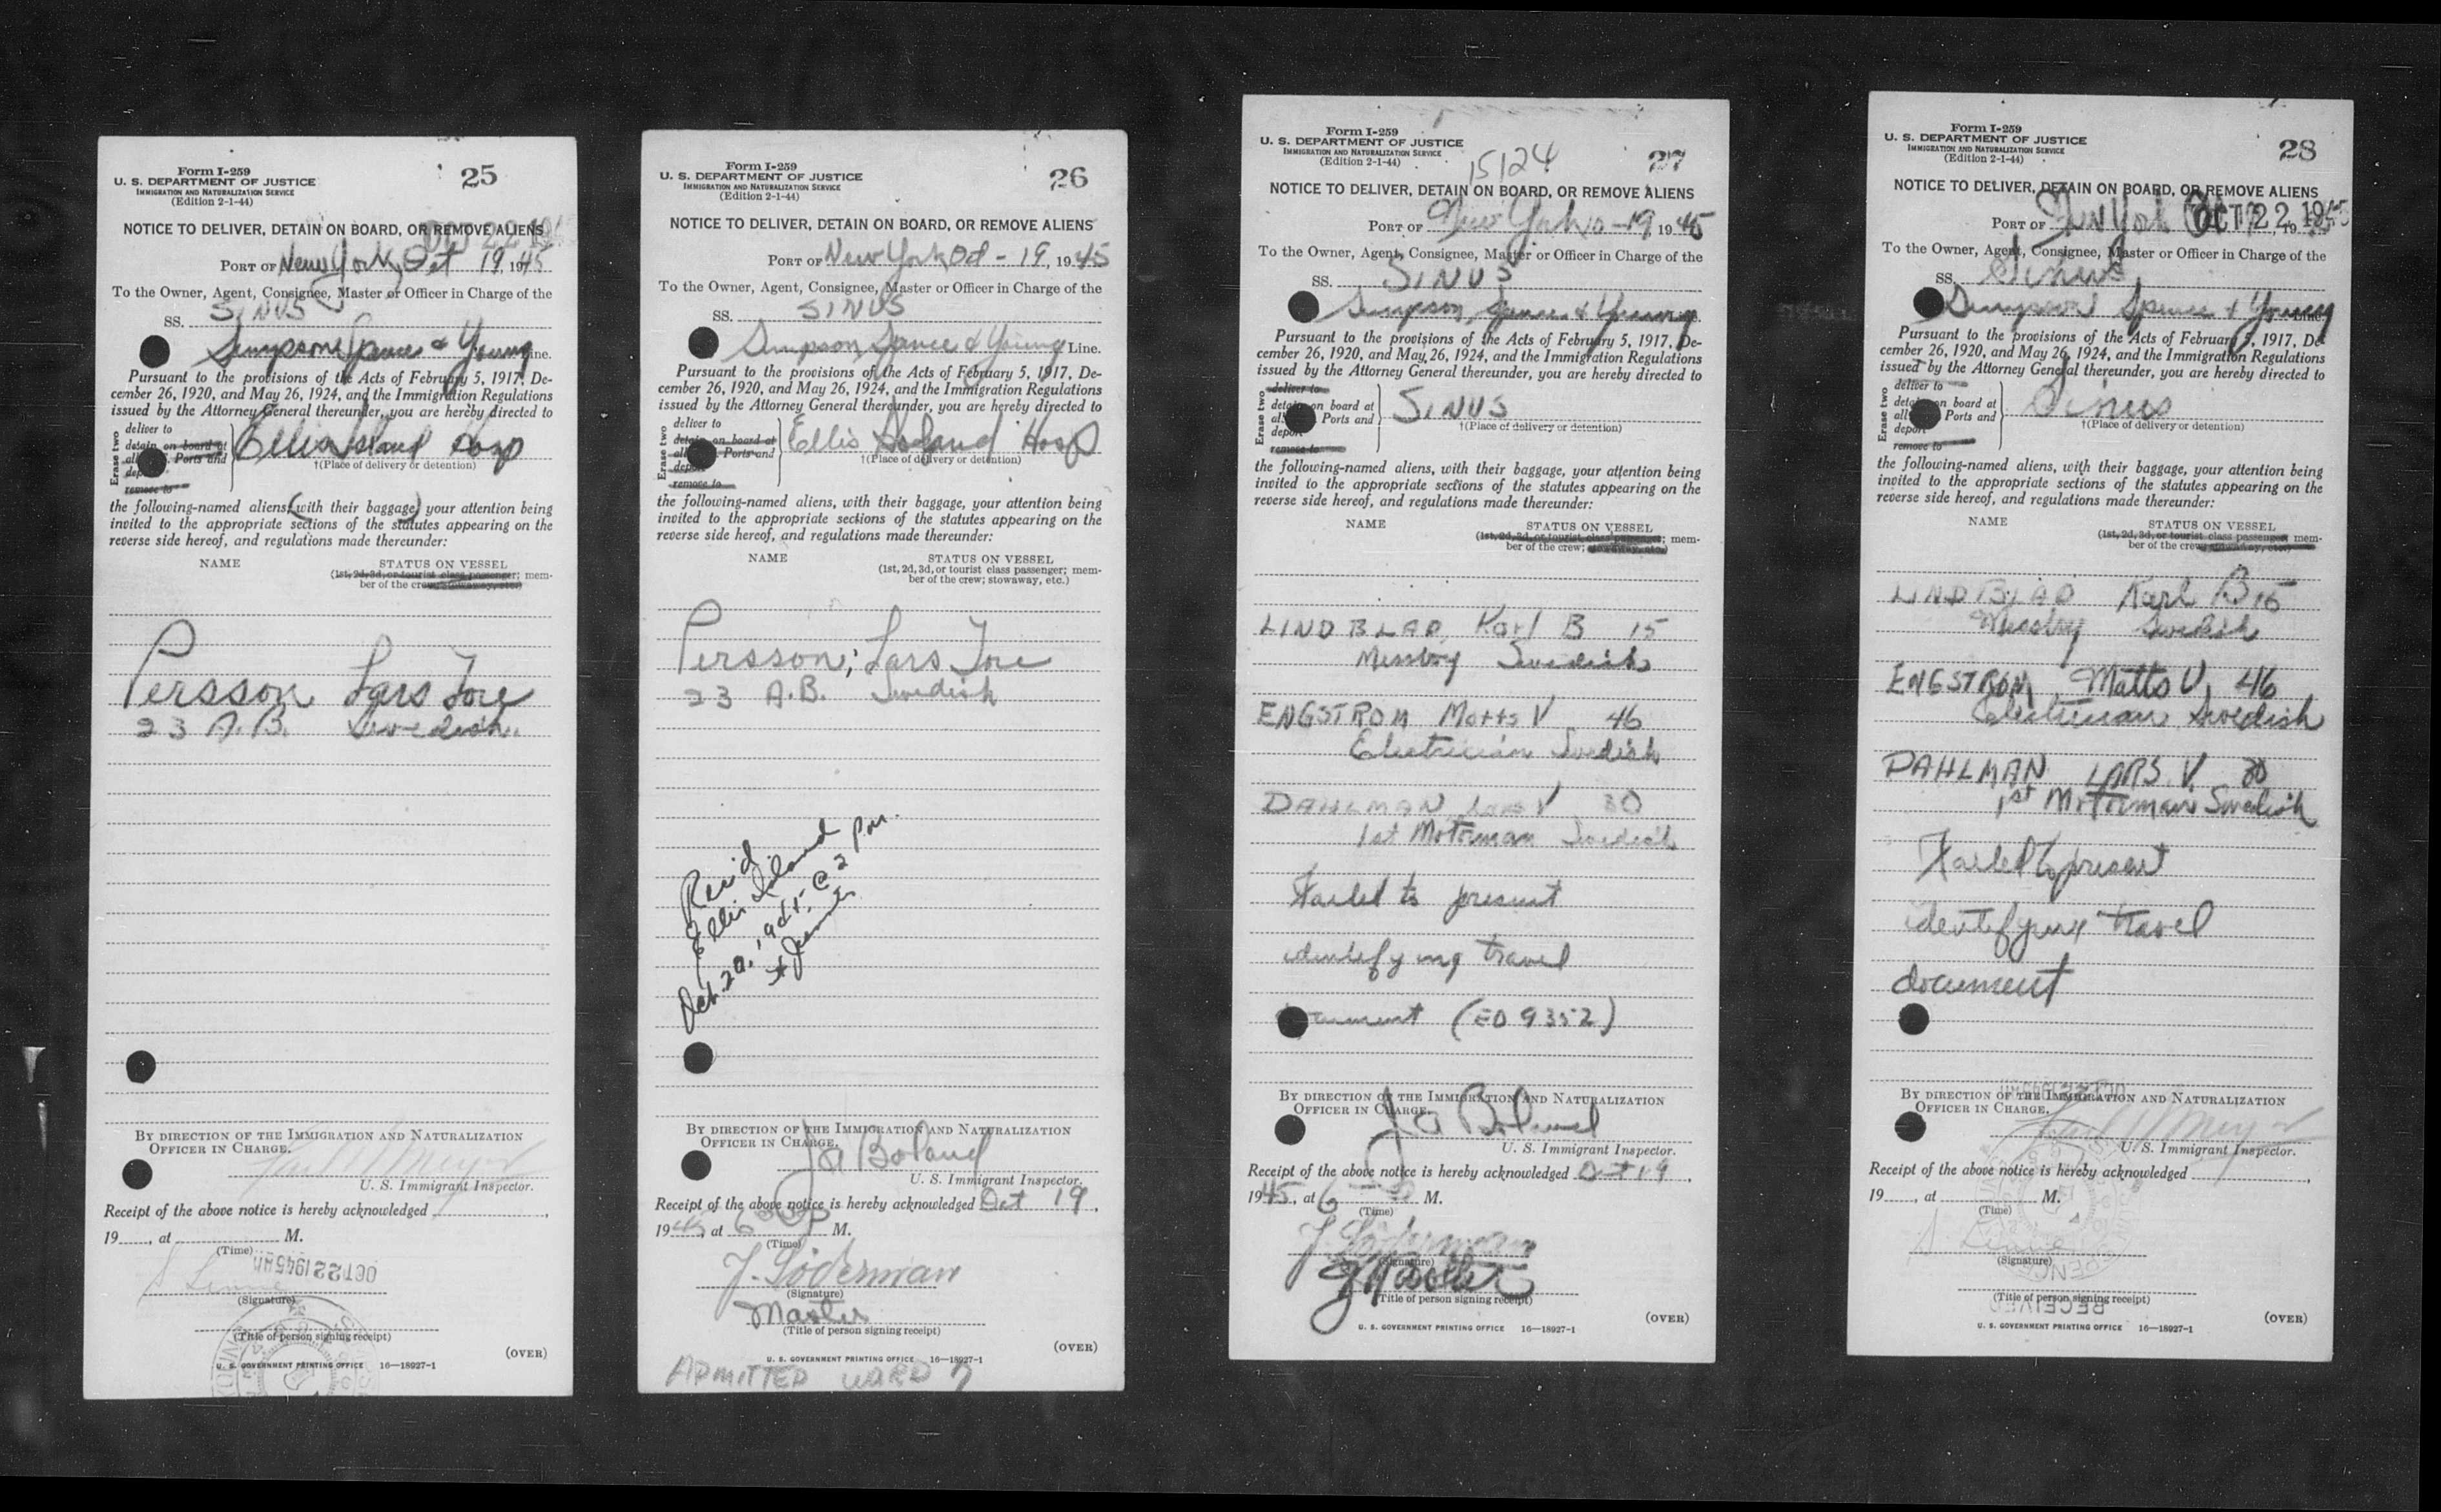 Form I-259
U. S. DEPARTMENT OF JUSTICE
IMMIGRATION AND NATURALIZATION SERVICE
(Edition 2-1-44)
25
NOTICE TO DELIVER, DETAIN ON BOARD, OR REMOVE ALIENS
OCT 22 19
PORT OF New York, Oct 19, 1945
To the Owner, Agent, Consignee, Master or Officer in Charge of the
SS. SINUS
Simpson Spence & Young Line.
Pursuant to the provisions of the Acts of February 5, 1917, De-
cember 26, 1920, and May 26, 1924, and the Immigration Regulations
issued by the Attorney General thereunder, you are hereby directed to
Erase two
deliver to
detain on board at
all Ports and
remove to
Ellis Island Hosp
†(Place of delivery or detention)
the following-named aliens, (with their baggage,) your attention being
invited to the appropriate sections of the statutes appearing on the
reverse side hereof, and regulations made thereunder:
NAME STATUS ON VESSEL
(1st, 2d, 3d, or tourist class passenger; mem-
ber of the crew; stowaway, etc.)
Persson Lars Tore
23 A.B. Swedish
BY DIRECTION OF THE IMMIGRATION AND NATURALIZATION
OFFICER IN CHARGE.
Meyer
U. S. Immigrant Inspector.
Receipt of the above notice is hereby acknowledged ,
19 , at M.
(Time)
OCT 22 1945 AM
(Signature)
(Title of person signing receipt)
(OVER)
U. S. GOVERNMENT PRINTING OFFICE 16—18927-1
Form I-259
U. S. DEPARTMENT OF JUSTICE
IMMIGRATION AND NATURALIZATION SERVICE
(Edition 2-1-44)
26
NOTICE TO DELIVER, DETAIN ON BOARD, OR REMOVE ALIENS
PORT OF New York, Oct - 19, 1945
To the Owner, Agent, Consignee, Master or Officer in Charge of the
SS. SINUS
Simpson, Spence & Young Line.
Pursuant to the provisions of the Acts of February 5, 1917, De-
cember 26, 1920, and May 26, 1924, and the Immigration Regulations
issued by the Attorney General thereunder, you are hereby directed to
Erase two
deliver to
detain on board at
all Ports and
remove to
Ellis Island Hosp
†(Place of delivery or detention)
the following-named aliens, with their baggage, your attention being
invited to the appropriate sections of the statutes appearing on the
reverse side hereof, and regulations made thereunder:
NAME STATUS ON VESSEL
(1st, 2d, 3d, or tourist class passenger; mem-
ber of the crew; stowaway, etc.)
Persson, Lars Tore
23 A.B. Swedish
Rec'd
Ellis Island
Oct. 20, 1945 @ 2 pm.
BY DIRECTION OF THE IMMIGRATION AND NATURALIZATION
OFFICER IN CHARGE.
J a Boland
U. S. Immigrant Inspector.
Receipt of the above notice is hereby acknowledged Oct 19 ,
1945, at 6 00 P M.
(Time)
J. Söderman
(Signature)
Master
(Title of person signing receipt)
(OVER)
U. S. GOVERNMENT PRINTING OFFICE 16—18927-1
ADMITTED WARD 7
Form I-259
U. S. DEPARTMENT OF JUSTICE
IMMIGRATION AND NATURALIZATION SERVICE
(Edition 2-1-44)
15124
27
NOTICE TO DELIVER, DETAIN ON BOARD, OR REMOVE ALIENS
PORT OF New York 10-19, 1945
To the Owner, Agent, Consignee, Master or Officer in Charge of the
SS. SINUS
Simpson, Spence & Young
Pursuant to the provisions of the Acts of February 5, 1917, De-
cember 26, 1920, and May 26, 1924, and the Immigration Regulations
issued by the Attorney General thereunder, you are hereby directed to
Erase two
deliver to
detain on board at
all Ports and
deport
remove to
SINUS
†(Place of delivery or detention)
the following-named aliens, with their baggage, your attention being
invited to the appropriate sections of the statutes appearing on the
reverse side hereof, and regulations made thereunder:
NAME STATUS ON VESSEL
(1st, 2d, 3d, or tourist class passenger; mem-
ber of the crew; stowaway, etc.)
LINDBLAD, Karl B 15
Messboy Swedish
ENGSTROM Matts V 46
Electrician Swedish
DAHLMAN Lars V 30
1st Motorman Swedish
Failed to present
identifying travel
document (ED 9352)
BY DIRECTION OF THE IMMIGRATION AND NATURALIZATION
OFFICER IN CHARGE.
J a Boland
U. S. Immigrant Inspector.
Receipt of the above notice is hereby acknowledged Oct 19 ,
1945, at 6 M.
(Time)
J. Söderman
(Signature)
Master
(Title of person signing receipt)
(OVER)
U. S. GOVERNMENT PRINTING OFFICE 16—18927-1
Form I-259
U. S. DEPARTMENT OF JUSTICE
IMMIGRATION AND NATURALIZATION SERVICE
(Edition 2-1-44)
28
NOTICE TO DELIVER, DETAIN ON BOARD, OR REMOVE ALIENS
PORT OF New York OCT 22 1945
To the Owner, Agent, Consignee, Master or Officer in Charge of the
SS. Sinus
Simpson Spence & Young Line.
Pursuant to the provisions of the Acts of February 5, 1917, De-
cember 26, 1920, and May 26, 1924, and the Immigration Regulations
issued by the Attorney General thereunder, you are hereby directed to
Erase two
deliver to
detain on board at
all Ports and
deport
remove to
Sinus
†(Place of delivery or detention)
the following-named aliens, with their baggage, your attention being
invited to the appropriate sections of the statutes appearing on the
reverse side hereof, and regulations made thereunder:
NAME STATUS ON VESSEL
(1st, 2d, 3d, or tourist class passenger; mem-
ber of the crew; stowaway, etc.)
LINDBLAD Karl B 15
Messboy Swedish
ENGSTROM, Matts V, 46
Electrician Swedish
DAHLMAN LARS. V. 30
1st Motorman Swedish
Failed to present
identifying travel
document
BY DIRECTION OF THE IMMIGRATION AND NATURALIZATION
OFFICER IN CHARGE.
Meyer
U. S. Immigrant Inspector.
Receipt of the above notice is hereby acknowledged ,
19 , at M.
(Time)
(Signature)
(Title of person signing receipt)
RECEIVED
(OVER)
U. S. GOVERNMENT PRINTING OFFICE 16—18927-1